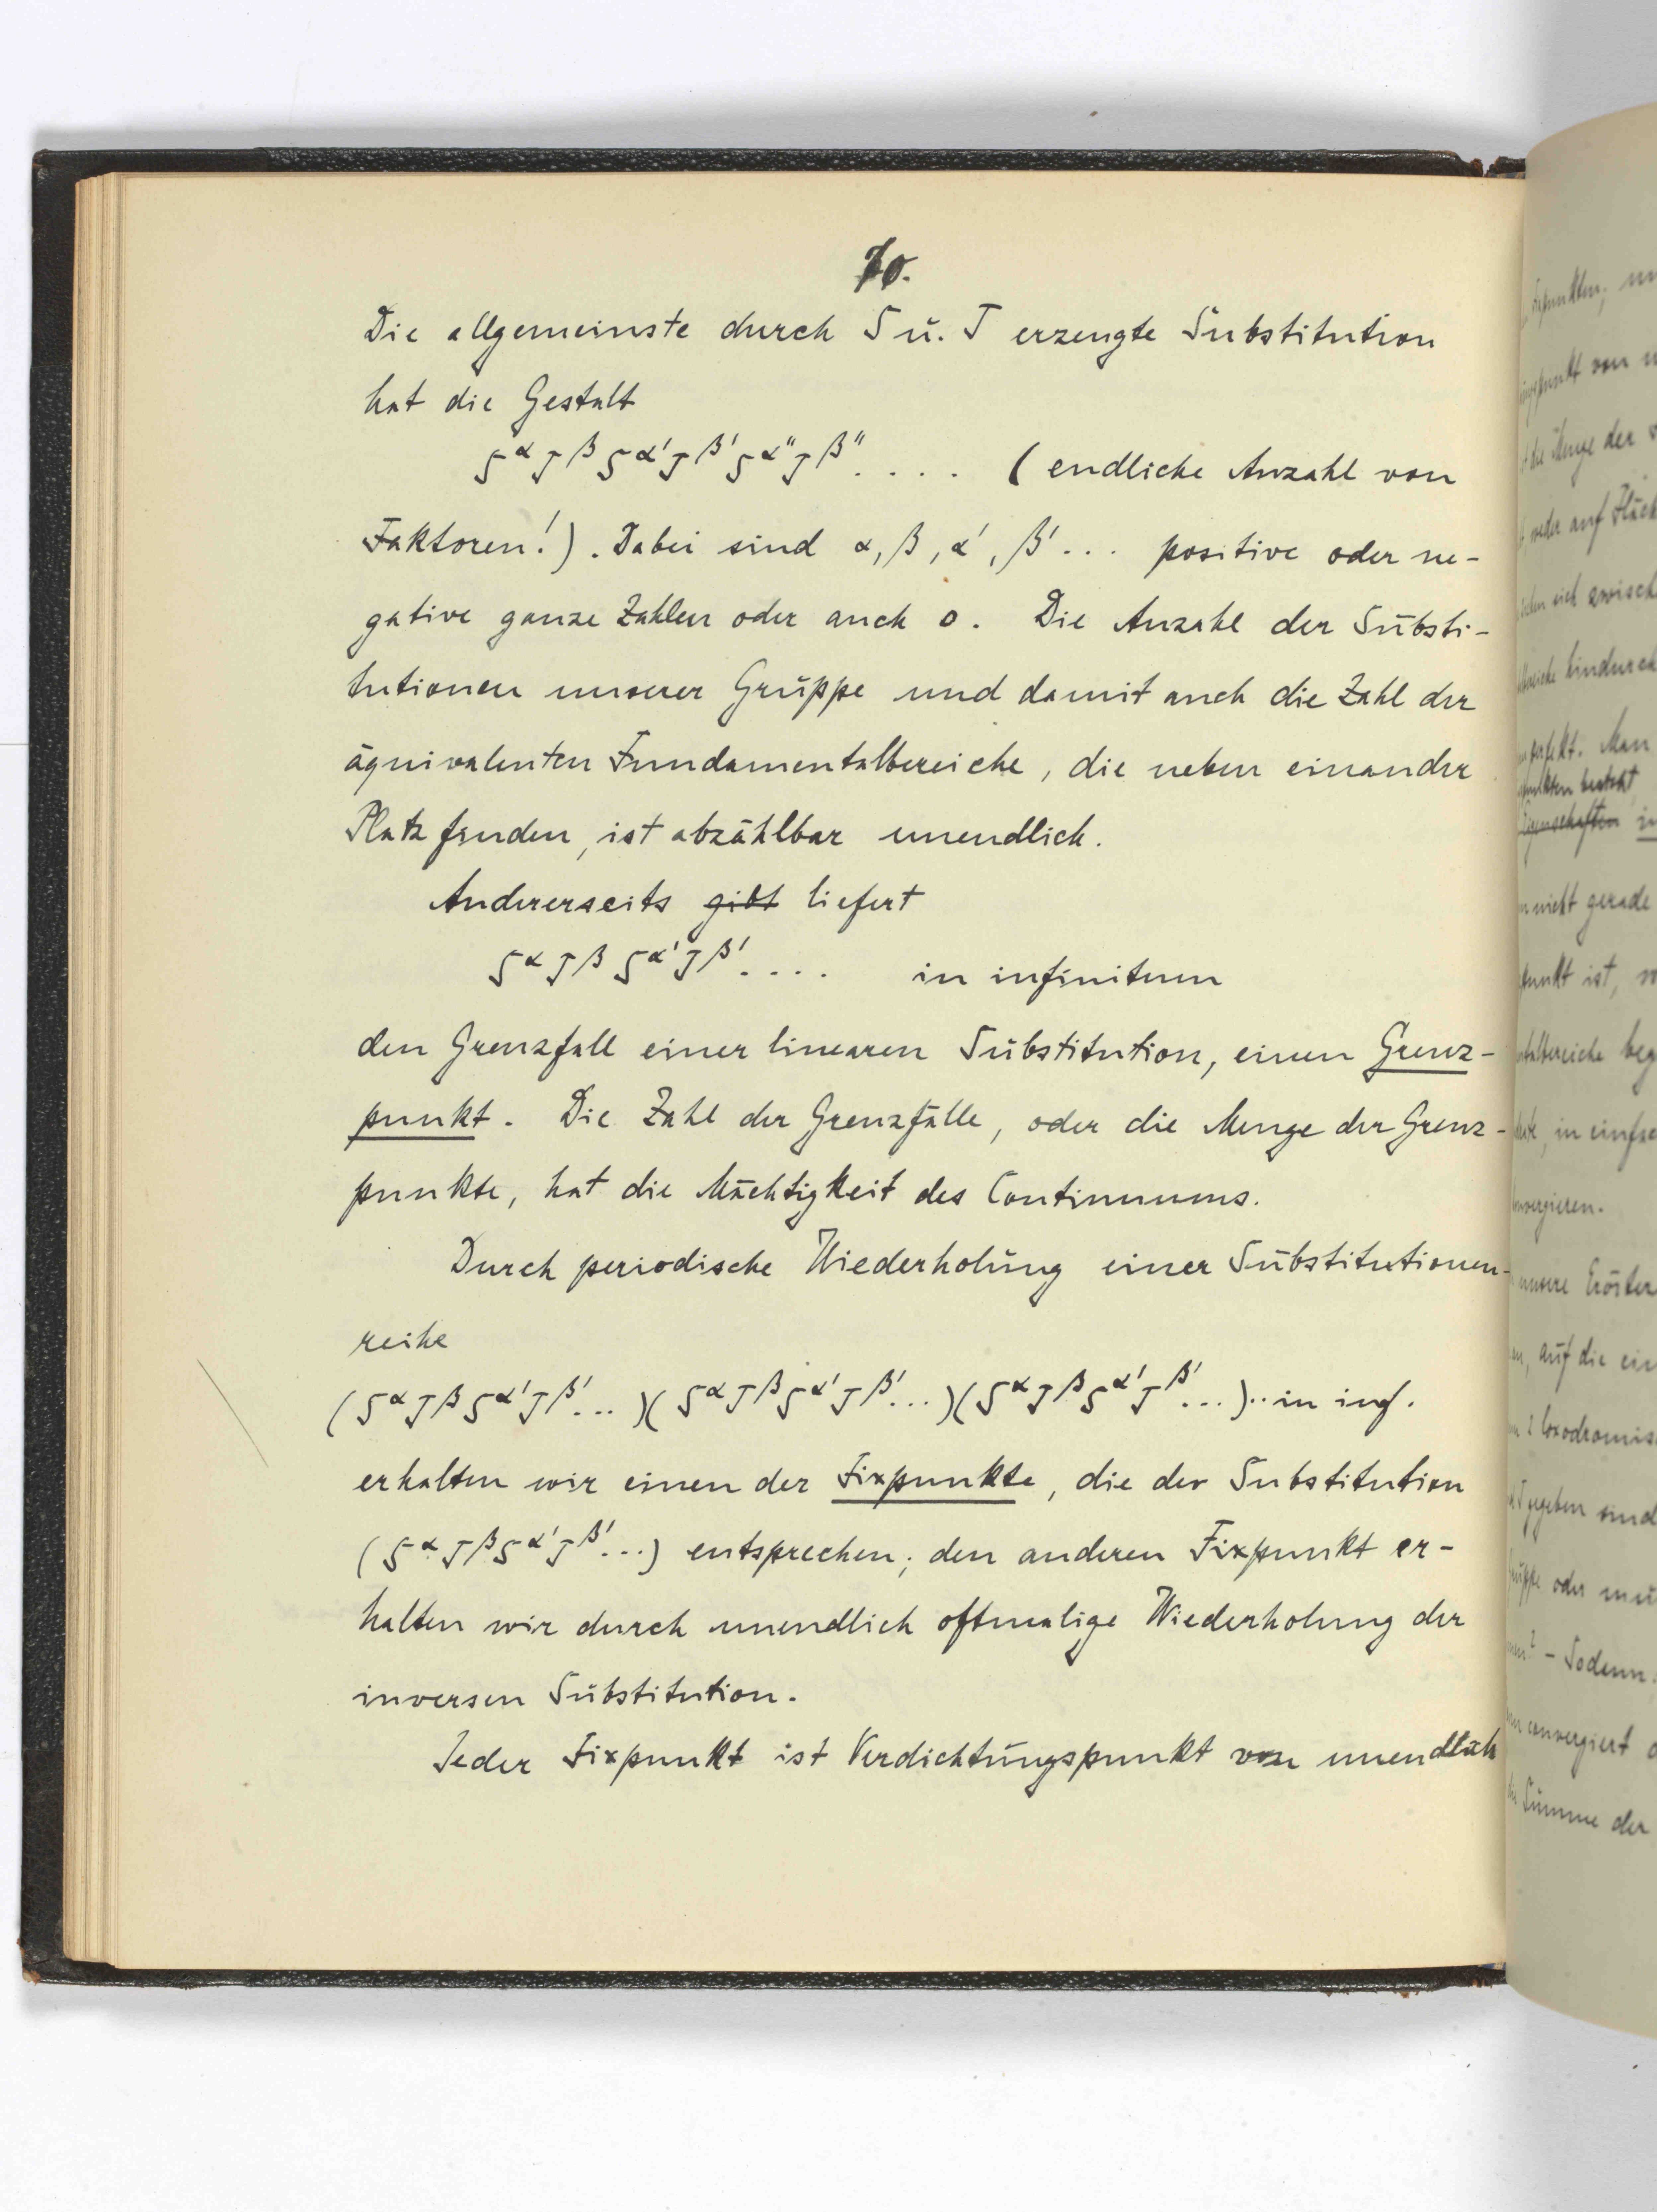 70.
Die allgemeinste durch S u. T erzeugte Substitution
hat die Gestalt
S^α T^β S^α' T^β' S^α'' T^β'' . . . . (endliche Anzahl von
Faktoren!). Dabei sind α, β, α', β' . . . positive oder ne-
gative ganze Zahlen oder auch 0. Die Anzahl der Substi-
tutionen unserer Gruppe und damit auch die Zahl der
äquivalenten Fundamentalbereiche, die neben einander
Platz finden, ist abzählbar unendlich.
Andererseits gibt liefert
S^α T^β S^α' T^β' . . . . in infinitum
den Grenzfall einer linearen Substitution, einen Grenz-
punkt. Die Zahl der Grenzfälle, oder die Menge der Grenz-
punkte, hat die Mächtigkeit des Continuums.
Durch periodische Wiederholung einer Substitutionen-
reihe
(S^α T^β S^α' T^β' ...)(S^α T^β S^α' T^β' ...)(S^α T^β S^α' T^β' ...).. in inf.
erhalten wir einen der Fixpunkte, die der Substitution
(S^α T^β S^α' T^β' ...) entsprechen; den anderen Fixpunkt er-
halten wir durch unendlich oftmalige Wiederholung der
inversen Substitution.
Jeder Fixpunkt ist Verdichtungspunkt von unendlich
die Menge der
weder auf
sich
hindurch
perfekt. Man
punkten besteht
Eigenschaften
nicht gerade
punkt ist,
in
convergieren.
unsere
auf die
2 loxodromis
gegeben sind
oder
– Sodann
convergiert
Summe der